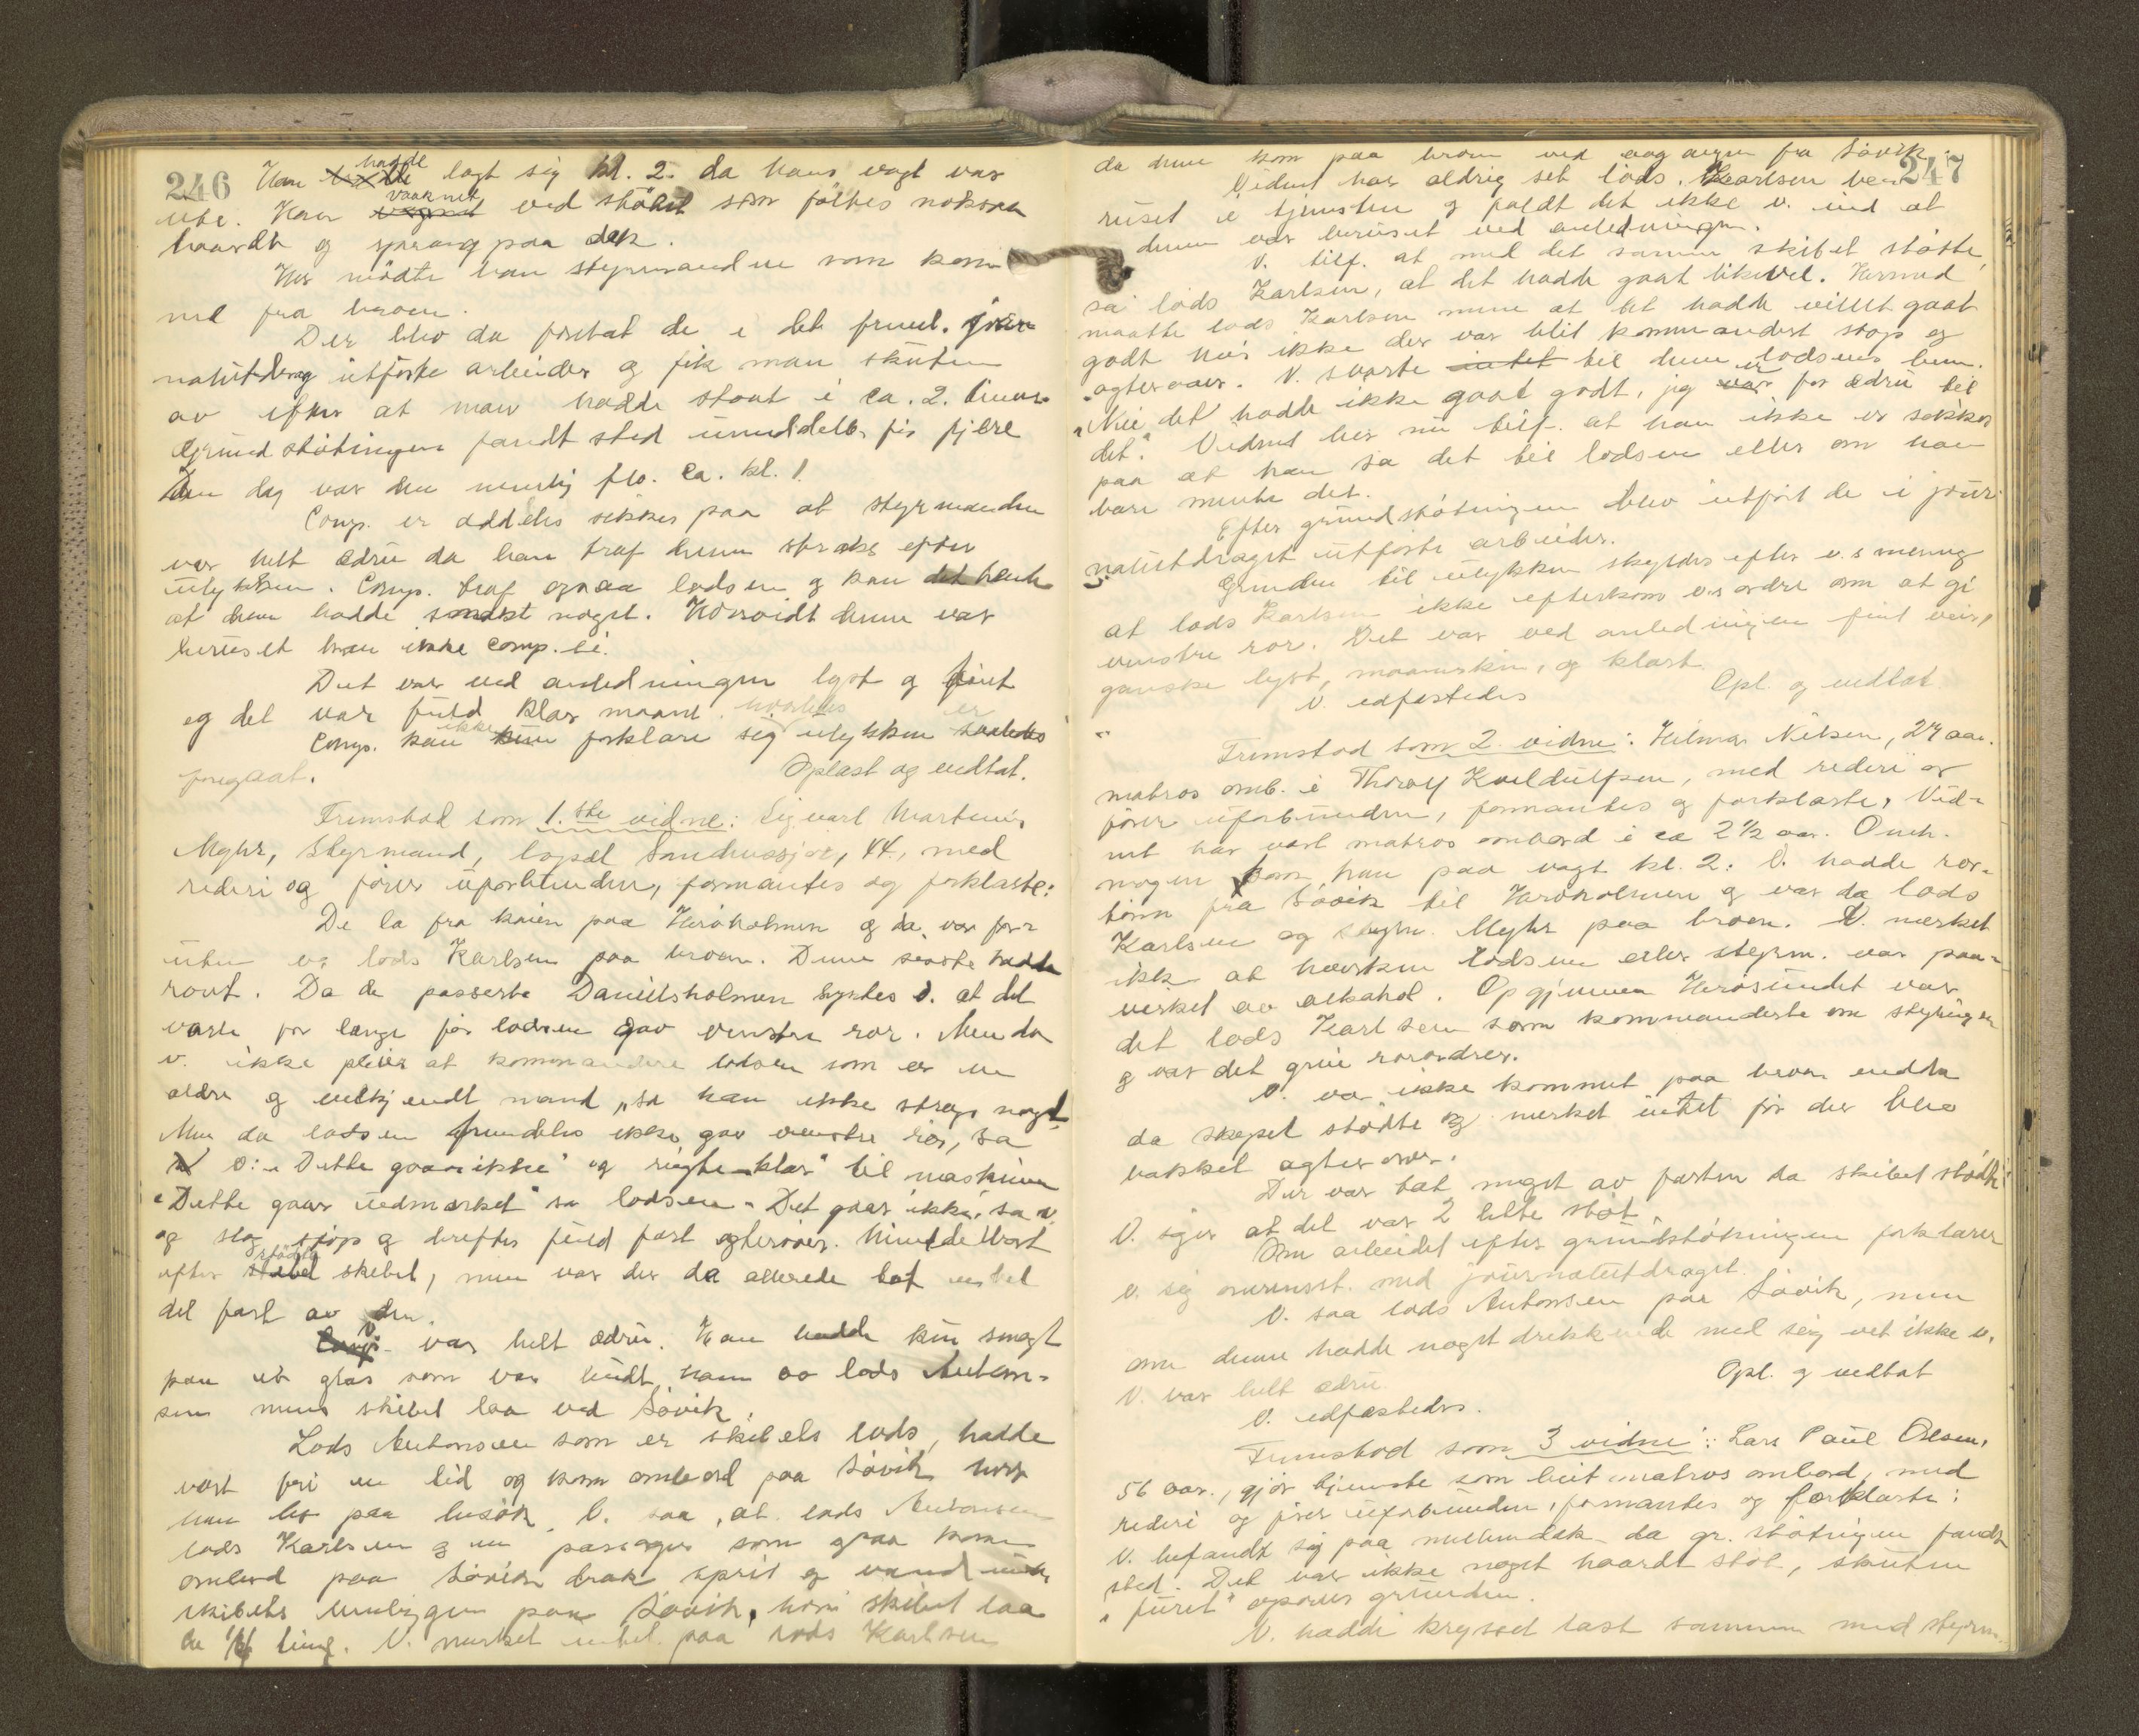 246
Han hadde lagt sig kl. 2. da hans vagt var
ute. Han vaaknet ved stötet som föltes noksaa
haardt og sprang paa dek.
Her mödte han styrmanden som kom
ned fra broen.
Der blev da foretat de i det freml. jour-
natutdrag utförte arbeider og fik man skuten
av efter at man hadde staat i ca. 2. timer.
Grundstötningen fandt sted umiddelb. för fjære
Den dag var den nemlig flo. ca. kl. 1.
Comp. er aldeles sikker paa at styrmanden
var helt ædru da han traf denne straks efter
ulykken. Comp. traf ogsaa lodsen og kan det hende
at denne hadde smakt noget. Hvorvidt denne var
beruset kan ikke Comp. si.
Det var ved anledningen lyst og fint
og det var fuld klar maane.
Comp. kan ikke forklare sig hvorledes ulykken er
foregaat.
Oplæst og vedtat.
Fremstod som 1.ste vidne: Sigvart Martinus
Myhr, styrmand, bopæl Sandnessjöen, 44, med
rederi og förer uforbunden, formantes og forklarte:
De la fra kaien paa Heröholmen og da var for-
uten v. lods Karlsen paa broen. Denne seneste hadde
rout. Da de passerte Danielsholmen syntes v. at det
varte for længe för lodsen gav venstre ror. Men da
v. ikke pleier at kommandere lodsen som er en
ældre og velkjendt mand, sa han ikke straks noget.
Men da lodsen fremdeles ikke gav venstre ror, sa
v: "Dette gaar ikke" og ringte "klar" til maskinen
"Dette gaar udmerket" sa lodsen. "Det gaar ikke", sa v.
og slog stop og derefter fuld fart agterover. Umiddelbart
efter stödte skibet, men var der da allerede tat en hel
del fart av den.
V. var helt ædru. Han hadde kun smagt
paa et glas som var budt ham av lods Anton-
sen mens skibet laa ved Sövik.
Lods Antonsen som er skibets lods, hadde
vært fri en tid og kom ombord paa Sövik hvor
han bor paa besök. V. saa, at lods Antonsen
lods Karlsen og en passager som ogsaa kom
ombord paa Sövik drak sprit og vand
skibets paa Sövik, hvor skibet laa
ca 1/4 time. V. merket intet paa lods Karlsen
247
da denne kom paa broen ved avgangen fra Sövik.
Vidnet har aldrig set lods. Karlsen be-
ruset i tjenesten og faldt det ikke v. ind at
denne var beruset ved anledningen.
V. tilf. at med det samme skibet stötte,
sa lods Karlsen, at det hadde gaat likevel. Hermed
maatte lods Karlsen mene at det hadde villet gaat
godt hvis ikke der var blit kommandert stop og
agterover. V. svarte til denne lodsens bem.
"Nei det hadde ikke gaat godt, jeg er for ædru til
det." Vidnet her nu tilf. at han ikke er sikker
paa at han sa det til lodsen eller om han
bare mente det.
Efter grundstötningen blev utfört de i jour-
natutdraget utförte arbeider.
Grunden til ulykken skyldes efter v.s mening
at lods Karlsen ikke efterkom v.s ordre om at gi
venstre ror. Det var ved anledningen fint veir,
ganske lyst, maaneskin, og klart.
Opl. og vedtat
V. edfæstedes
Fremstod som 2. vidne: Hilmar Nilsen, 27 aar.
matros omb. i Thorolf Kveldulfsen, med rederi og
förer uforbunden, formantes og forklarte, Vid-
net har vært matros ombord i ca 2 1/2 aar. Om-
mogen kom han paa vagt kl. 2. V. hadde ror-
törn fra Sövik til Heröholmen og var da lods
Karlsen og styrm. Myhr paa broen. V. merket
ikke at hverken lodsen eller styrm. var paa-
virket av alkohol. Op gjennem Herösundet var
det lods Karlsen som kommanderte om styringen
og var det greie rorordrer.
V. var ikke kommet paa broen endda
da skipet stödte og merket intet för der blev
bakket agterover.
Der var tat meget av farten da skibet stödte.
V. siger at det var 2 lette stöt.
Om arbeidet efter grundstötningen forklarer
v. sig overensst. med journalutdraget.
V. saa lods Antonsen paa Sövik, men
om denne hadde noget drikkende med seig vet ikke v.
V. var helt ædru
Opl. og vedtat
V. edfæstedes.
Fremstod som 3 vidne: Lars Paul Olsen,
56 aar, gjör tjeneste som letmatros ombord, med
rederi og förer uforbunden, formantes og forklarte:
V. befandt sig paa mellemdæk da gr. stötningen fandt
sted. Det var ikke noget haardt stöt, skuten
"furet" opover grunden.
V. hadde krysset last sammen med styrm.